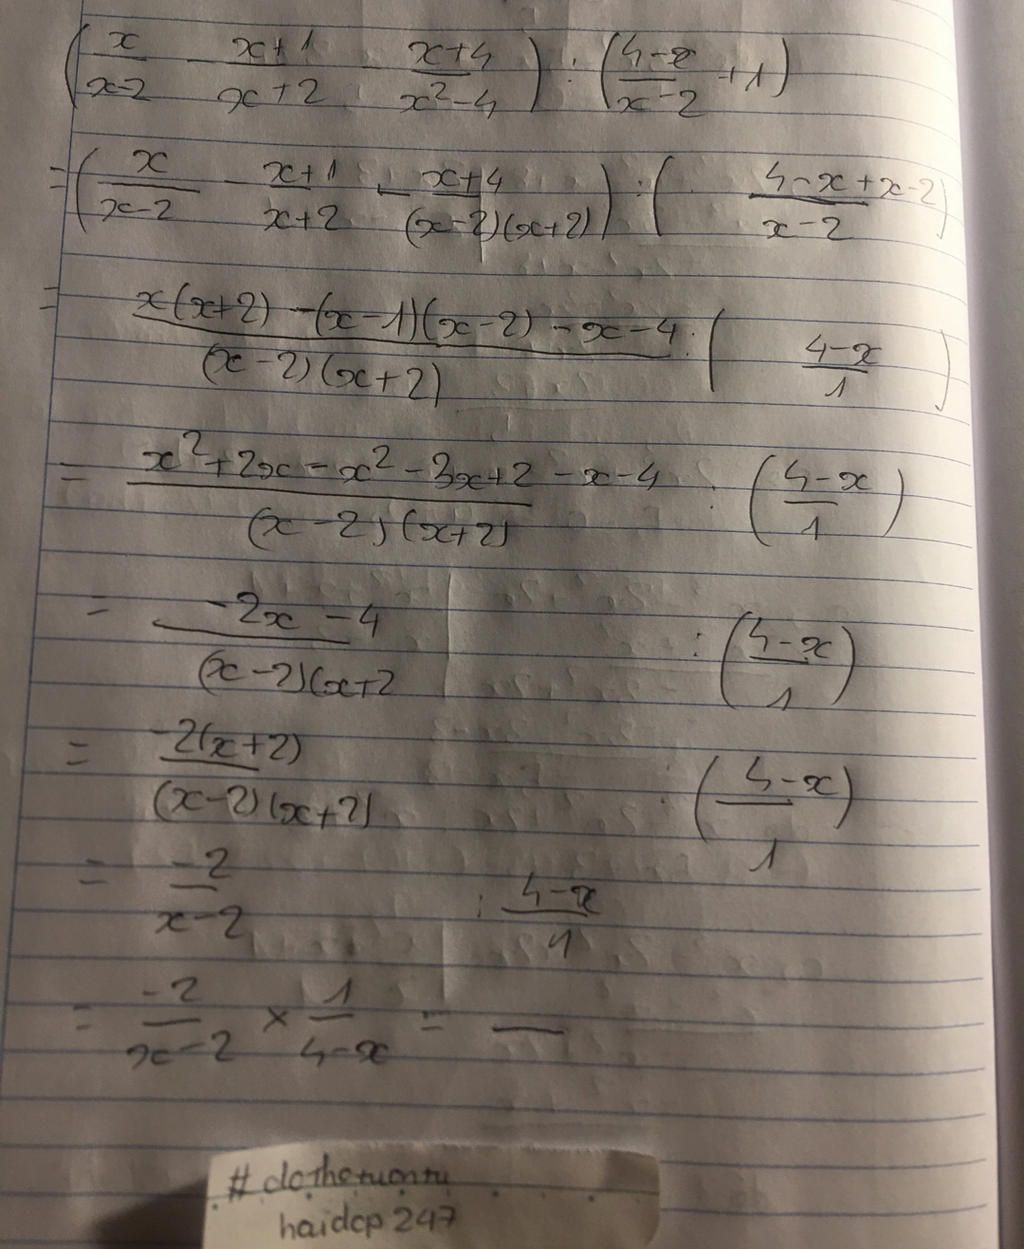 (x/(x-2) - (x+1)/(x+2) - (x+4)/(x²-4)) : ((4-x)/(x-2) + 1)
= (x/(x-2) - (x+1)/(x+2) - (x+4)/((x-2)(x+2))) : ((4-x+x-2)/(x-2))
= (x(x+2) - (x-1)(x-2) - x - 4)/((x-2)(x+2)) : ((4-x)/1)
= (x²+2x-x²-3x+2-x-4)/((x-2)(x+2)) : ((4-x)/1)
= (-2x-4)/((x-2)(x+2) : ((4-x)/1)
= (-2(x+2))/((x-2)(x+2)) : ((4-x)/1)
= (-2)/(x-2) : (4-x)/1
= (-2)/(x-2) × 1/(4-x) = —
haidcp247